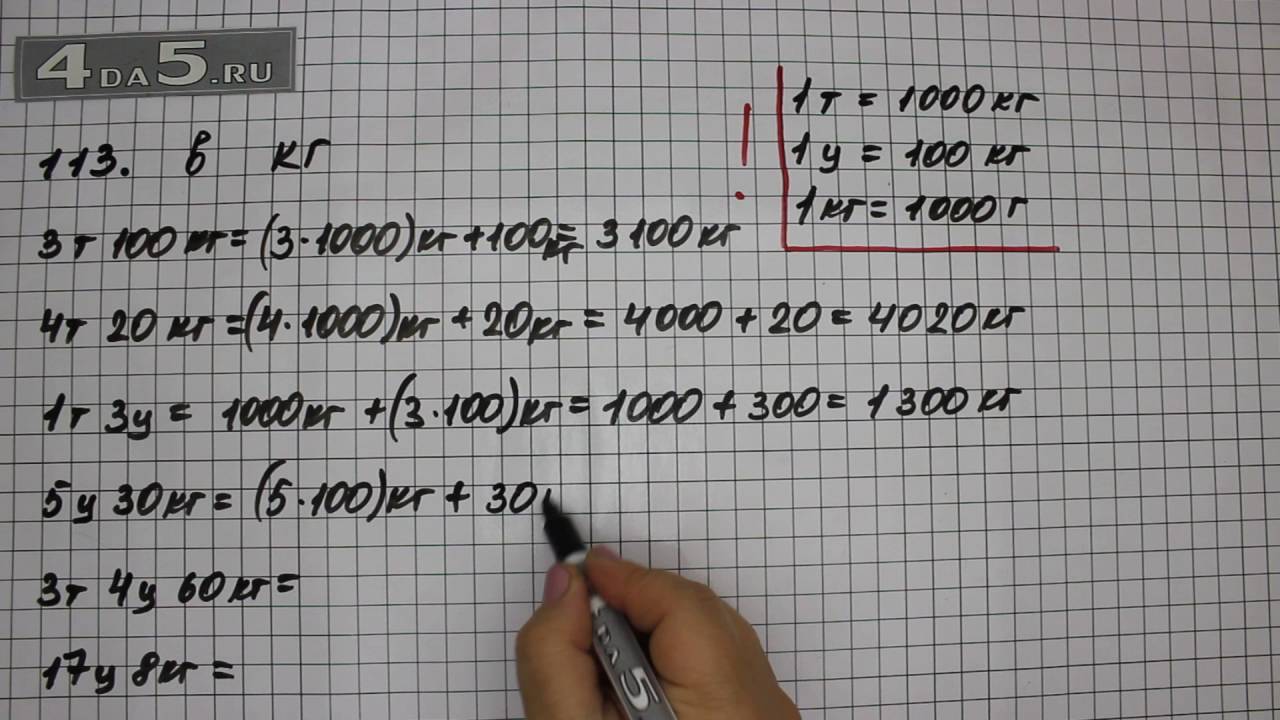 4DA5.RU
113. в кг
1т = 1000кг
1ц = 100 кг
1кг = 1000г
3т 100кг = (3·1000)кг + 100кг = 3100кг
4т 20 кг = (4·1000)кг + 20кг = 4000 + 20 = 4020кг
1т 3ц = 1000кг + (3·100)кг = 1000 + 300 = 1300кг
5ц 30кг = (5·100)кг + 30
3т 4ц 60кг =
17ц 8кг =
DA 5